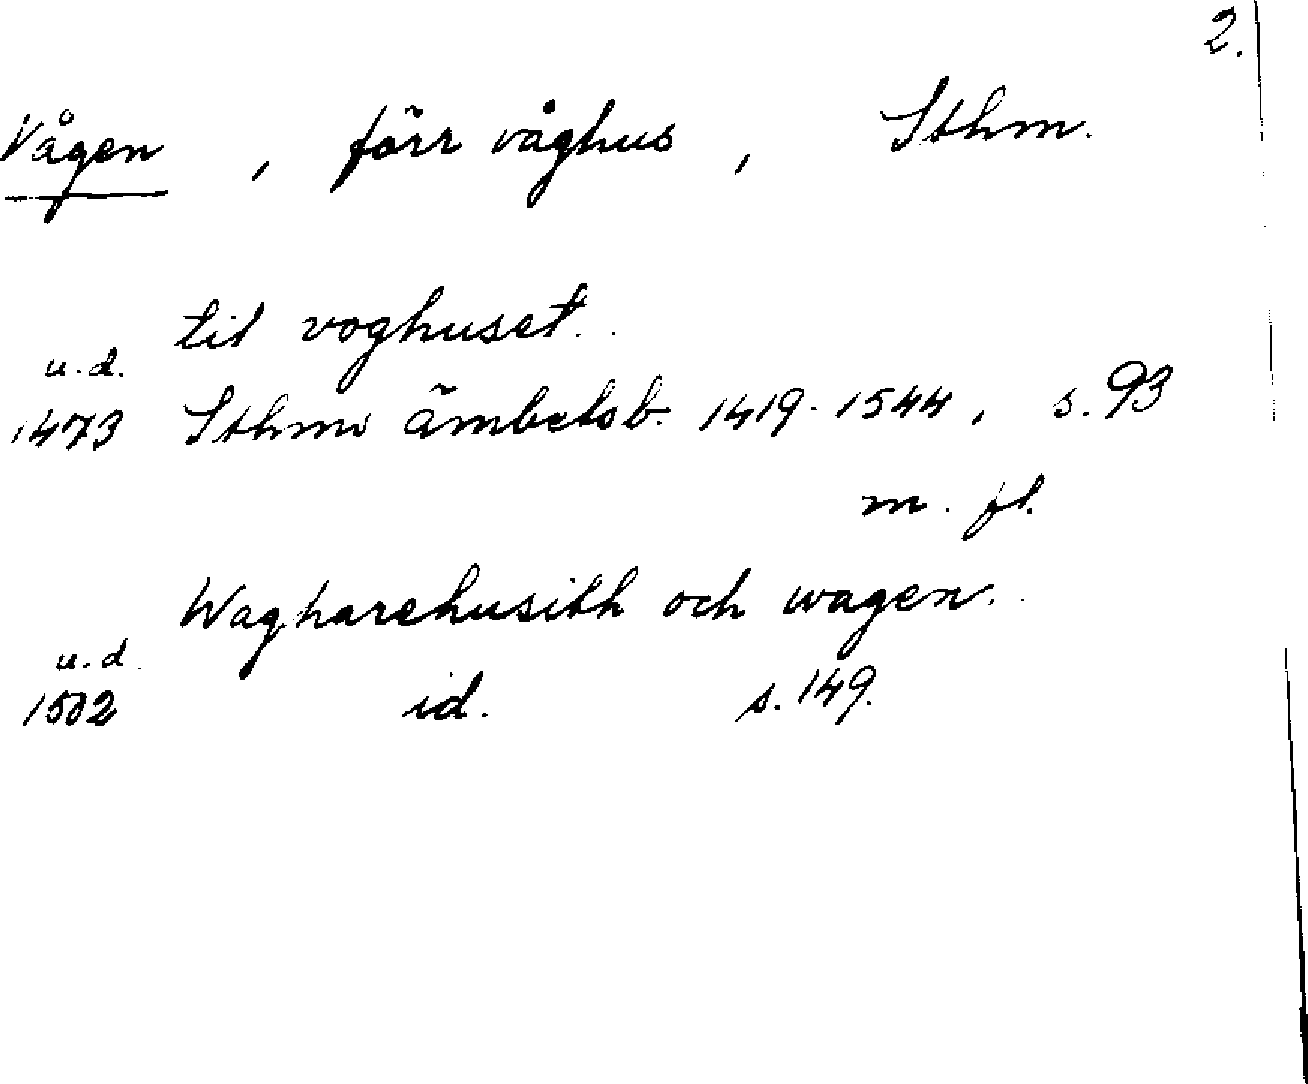 2.
Vågen, förr våghus, Sthm.
til voghuset.
u.d.
1473 Sthms ämbetsb. 1419-1544, s. 93
m. fl.
Wagharehusith och wagen.
u.d.
1502 id. s. 149.